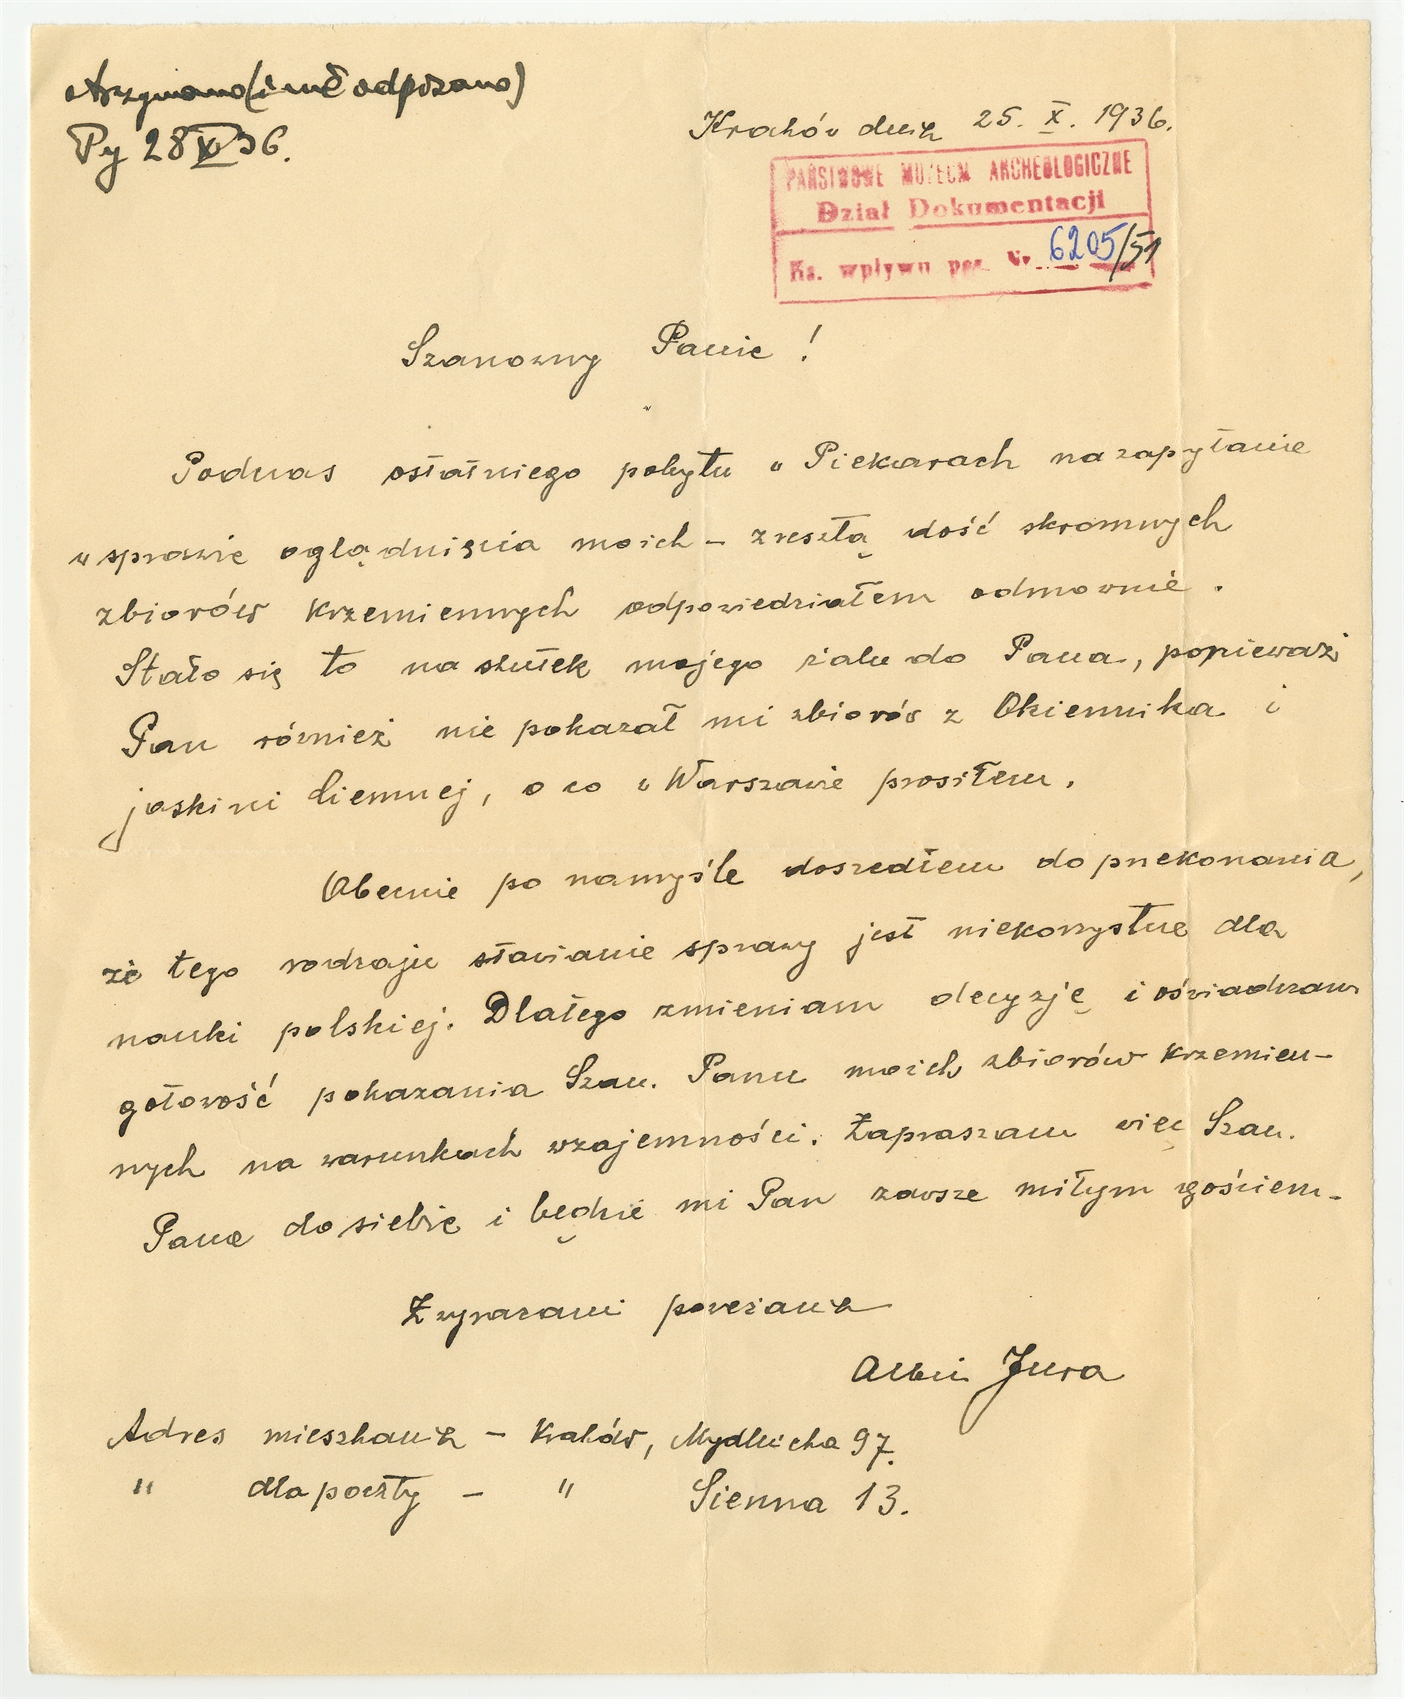 Otrzymano (i nie odpisano)
Py 28 X 36.
Kraków dnia 25. X. 1936.
PAŃSTWOWE MUZEUM ARCHEOLOGICZNE
Dział Dokumentacji
Ks. wpływu poz. Nr. 6205/51
Szanowny Panie!
Podczas ostatniego pobytu w Piekarach na zapytanie
w sprawie oglądnięcia moich – zresztą dość skromnych
zbiorów krzemiennych odpowiedziałem odmownie.
Stało się to na skutek mojego żalu do Pana, ponieważ
Pan również nie pokazał mi zbiorów z Okiennika i
jaskini Ciemnej, o co w Warszawie prosiłem.
Obecnie po namyśle doszedłem do przekonania,
że tego rodzaju stawianie sprawy jest niekorzystne dla
nauki polskiej. Dlatego zmieniam decyzję i oświadczam
gotowość pokazania Szan. Panu moich zbiorów krzemien-
nych na warunkach wzajemności. Zapraszam więc Szan.
Pana do siebie i będzie mi Pan zawsze miłym gościem.
Z wyrazami poważania
Albin Jura
Adres mieszkania – Kraków, Mydlnicka 97.
" dla poczty – " Sienna 13.